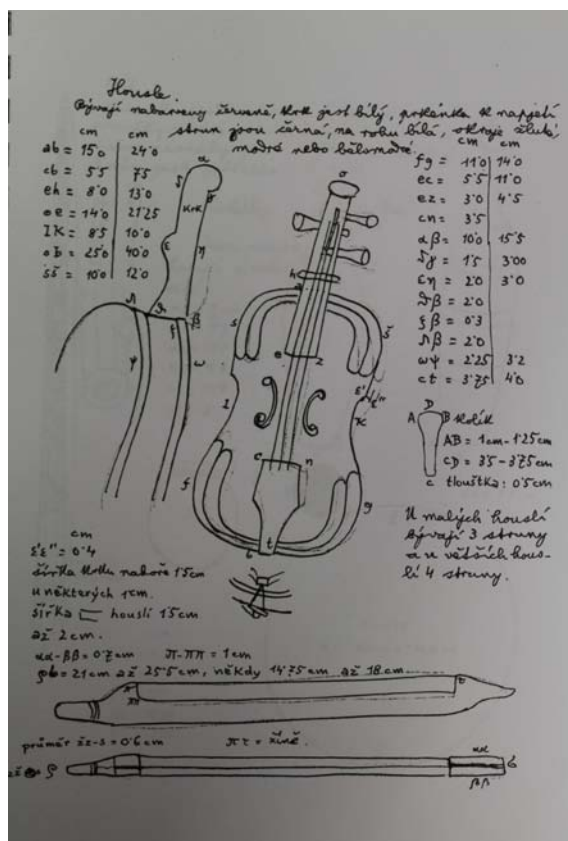 Housle.
Bývají nabarveny červeně, krk jest bílý, prkénka k napjetí
strun jsou černá, na rohu bílá, okraje žluté,
modré nebo bělomodré.
cm cm
ab = 15˙0 24˙0
cb = 5˙5 7˙5
eh = 8˙0 13˙0
oe = 14˙0 21˙25
IK = 8˙5 10˙0
ob = 25˙0 40˙0
sš = 10˙0 12˙0
cm cm
fg = 11˙0 14˙0
ec = 5˙5 11˙0
ez = 3˙0 4˙5
cn = 3˙5
αβ = 10˙0 15˙5
δγ = 1˙5 3˙00
εη = 2˙0 3˙0
ϑβ = 2˙0
ξβ = 0˙3
β = 2˙0
ωψ = 2˙25 3˙2
ct = 3˙75 4˙0
krk
D
A B kolík
AB = 1cm - 1˙25cm
CD = 3˙5 - 3˙75cm
c tloušťka: 0˙5cm
U malých houslí
bývají 3 struny
a u větších hous-
lí 4 struny.
cm
ε'ε'' = 0˙4
šířka krku nahoře 1˙5cm
u některých 1cm.
šířka houslí 1˙5cm
až 2cm.
αα-ββ = 0˙7cm π-ππ = 1cm
ϱb = 21cm až 25˙5cm, někdy 14˙75cm až 18cm
průměr žz-s = 0˙6cm πτ = žíně.
αα
ββ